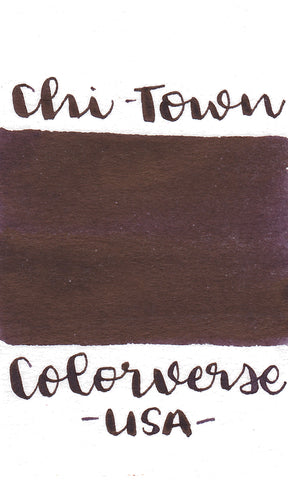 Chi-Town
Colorverse
-USA-